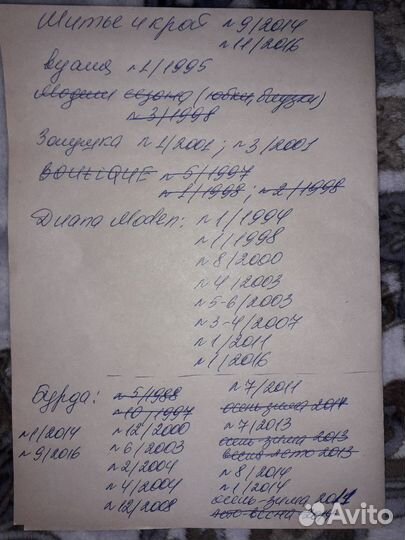 Шитье и крой №9/2014
№11/2016
Вуаля №1/1995
Модели сезона (юбки, блузки)
№3/1998
Золушка №1/2001; №3/2001
BOUTIQUE №5/1997
№1/1998; №2/1998
Диана Moden: №1/1994
№1/1998
№8/2000
№4/2003
№5-6/2003
№3-4/2007
№1/2011
№1/2016
Бурда:
№1/2014
№9/2016
№5/1988
№10/1997
№12/2000
№6/2003
№2/2004
№4/2004
№12/2008
№7/2011
осень-зима
№7/2013
осень-зима 2013
весна лето 2013
№8/2014
№1/2014
осень-зима
Avito